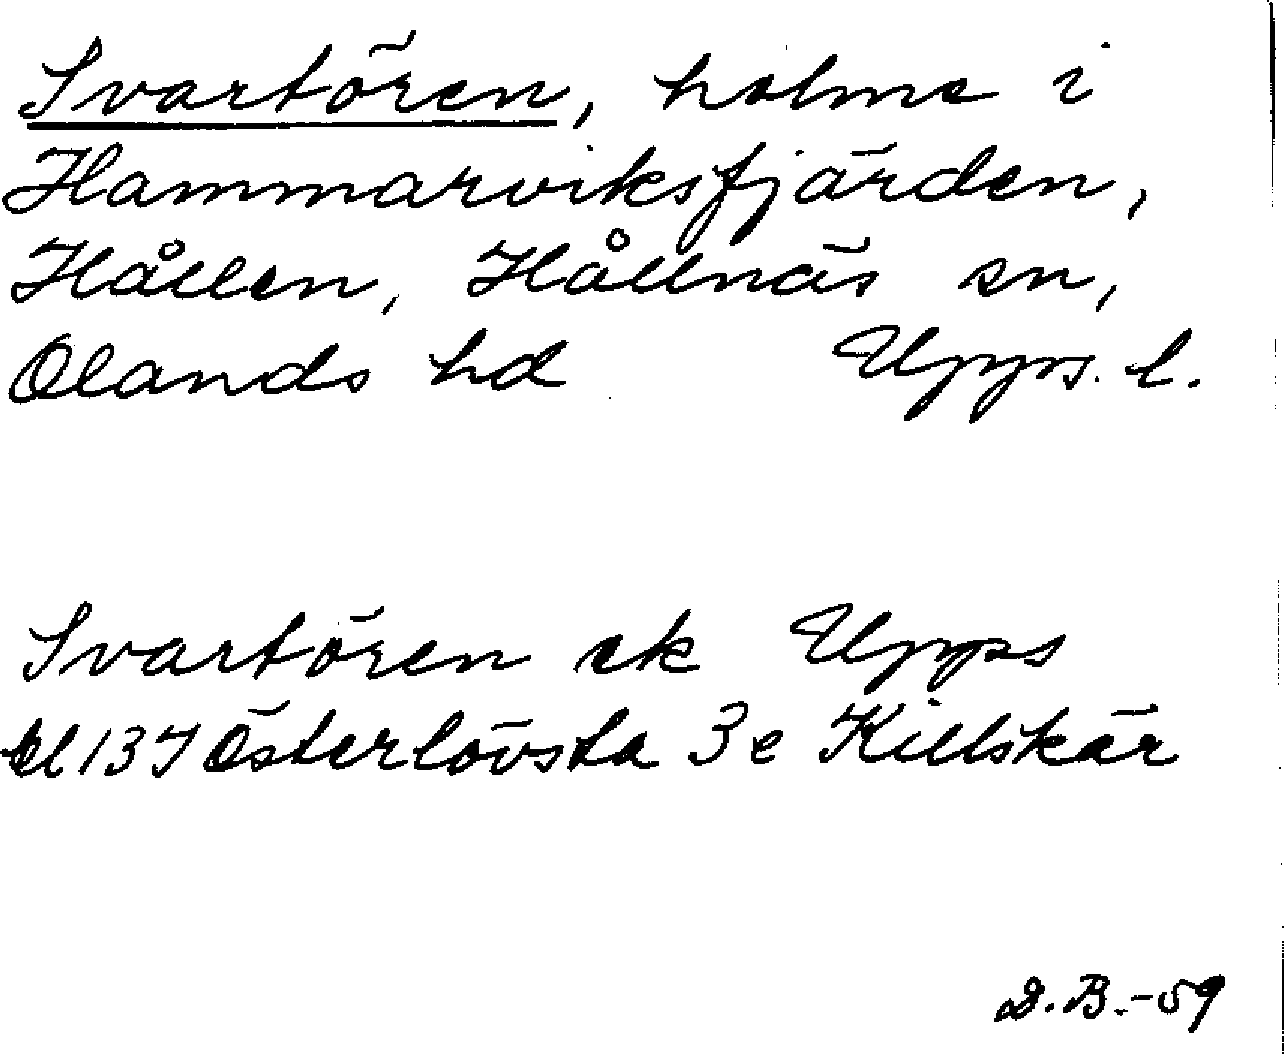 Svartören, holme i
Hammarviksfjärden,
Hållen, Hållnäs sn,
Olands hd Upps. l.
Svartören ek Upps
bl 137 Österlövsta 3 e Killskär
D.B.-59